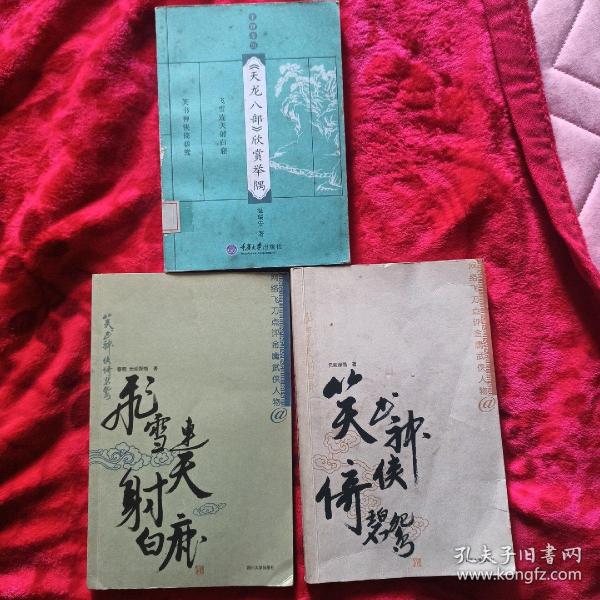 《天龙八部》欣赏举隅
飞雪连天射白鹿
笑书神侠倚碧鸳
温瑞安 著
重庆大学出版社
网络飞刀点评金庸武侠人物@
笑书神侠倚碧鸳
著
飛雪連天射白鹿
四川大学出版社
网络飞刀点评金庸武侠人物@
著
笑书神侠倚碧鸳
孔夫子旧书网
www.kongfz.com